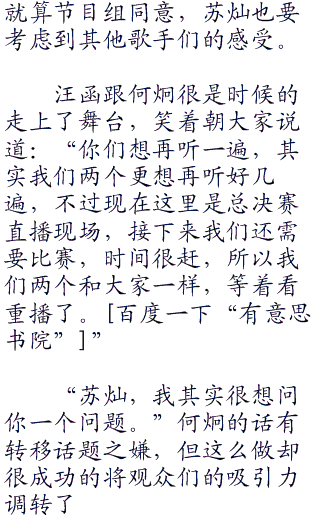 就算节目组同意，苏灿也要
考虑到其他歌手们的感受。
汪函跟何炯很是时候的
走上了舞台，笑着朝大家说
道：“你们想再听一遍，其
实我们两个更想再听好几
遍，不过现在这里是总决赛
直播现场，接下来我们还需
要比赛，时间很赶，所以我
们两个和大家一样，等着看
重播了。[百度一下“有意思
书院”]”
“苏灿，我其实很想问
你一个问题。”何炯的话有
转移话题之嫌，但这么做却
很成功的将观众们的吸引力
调转了